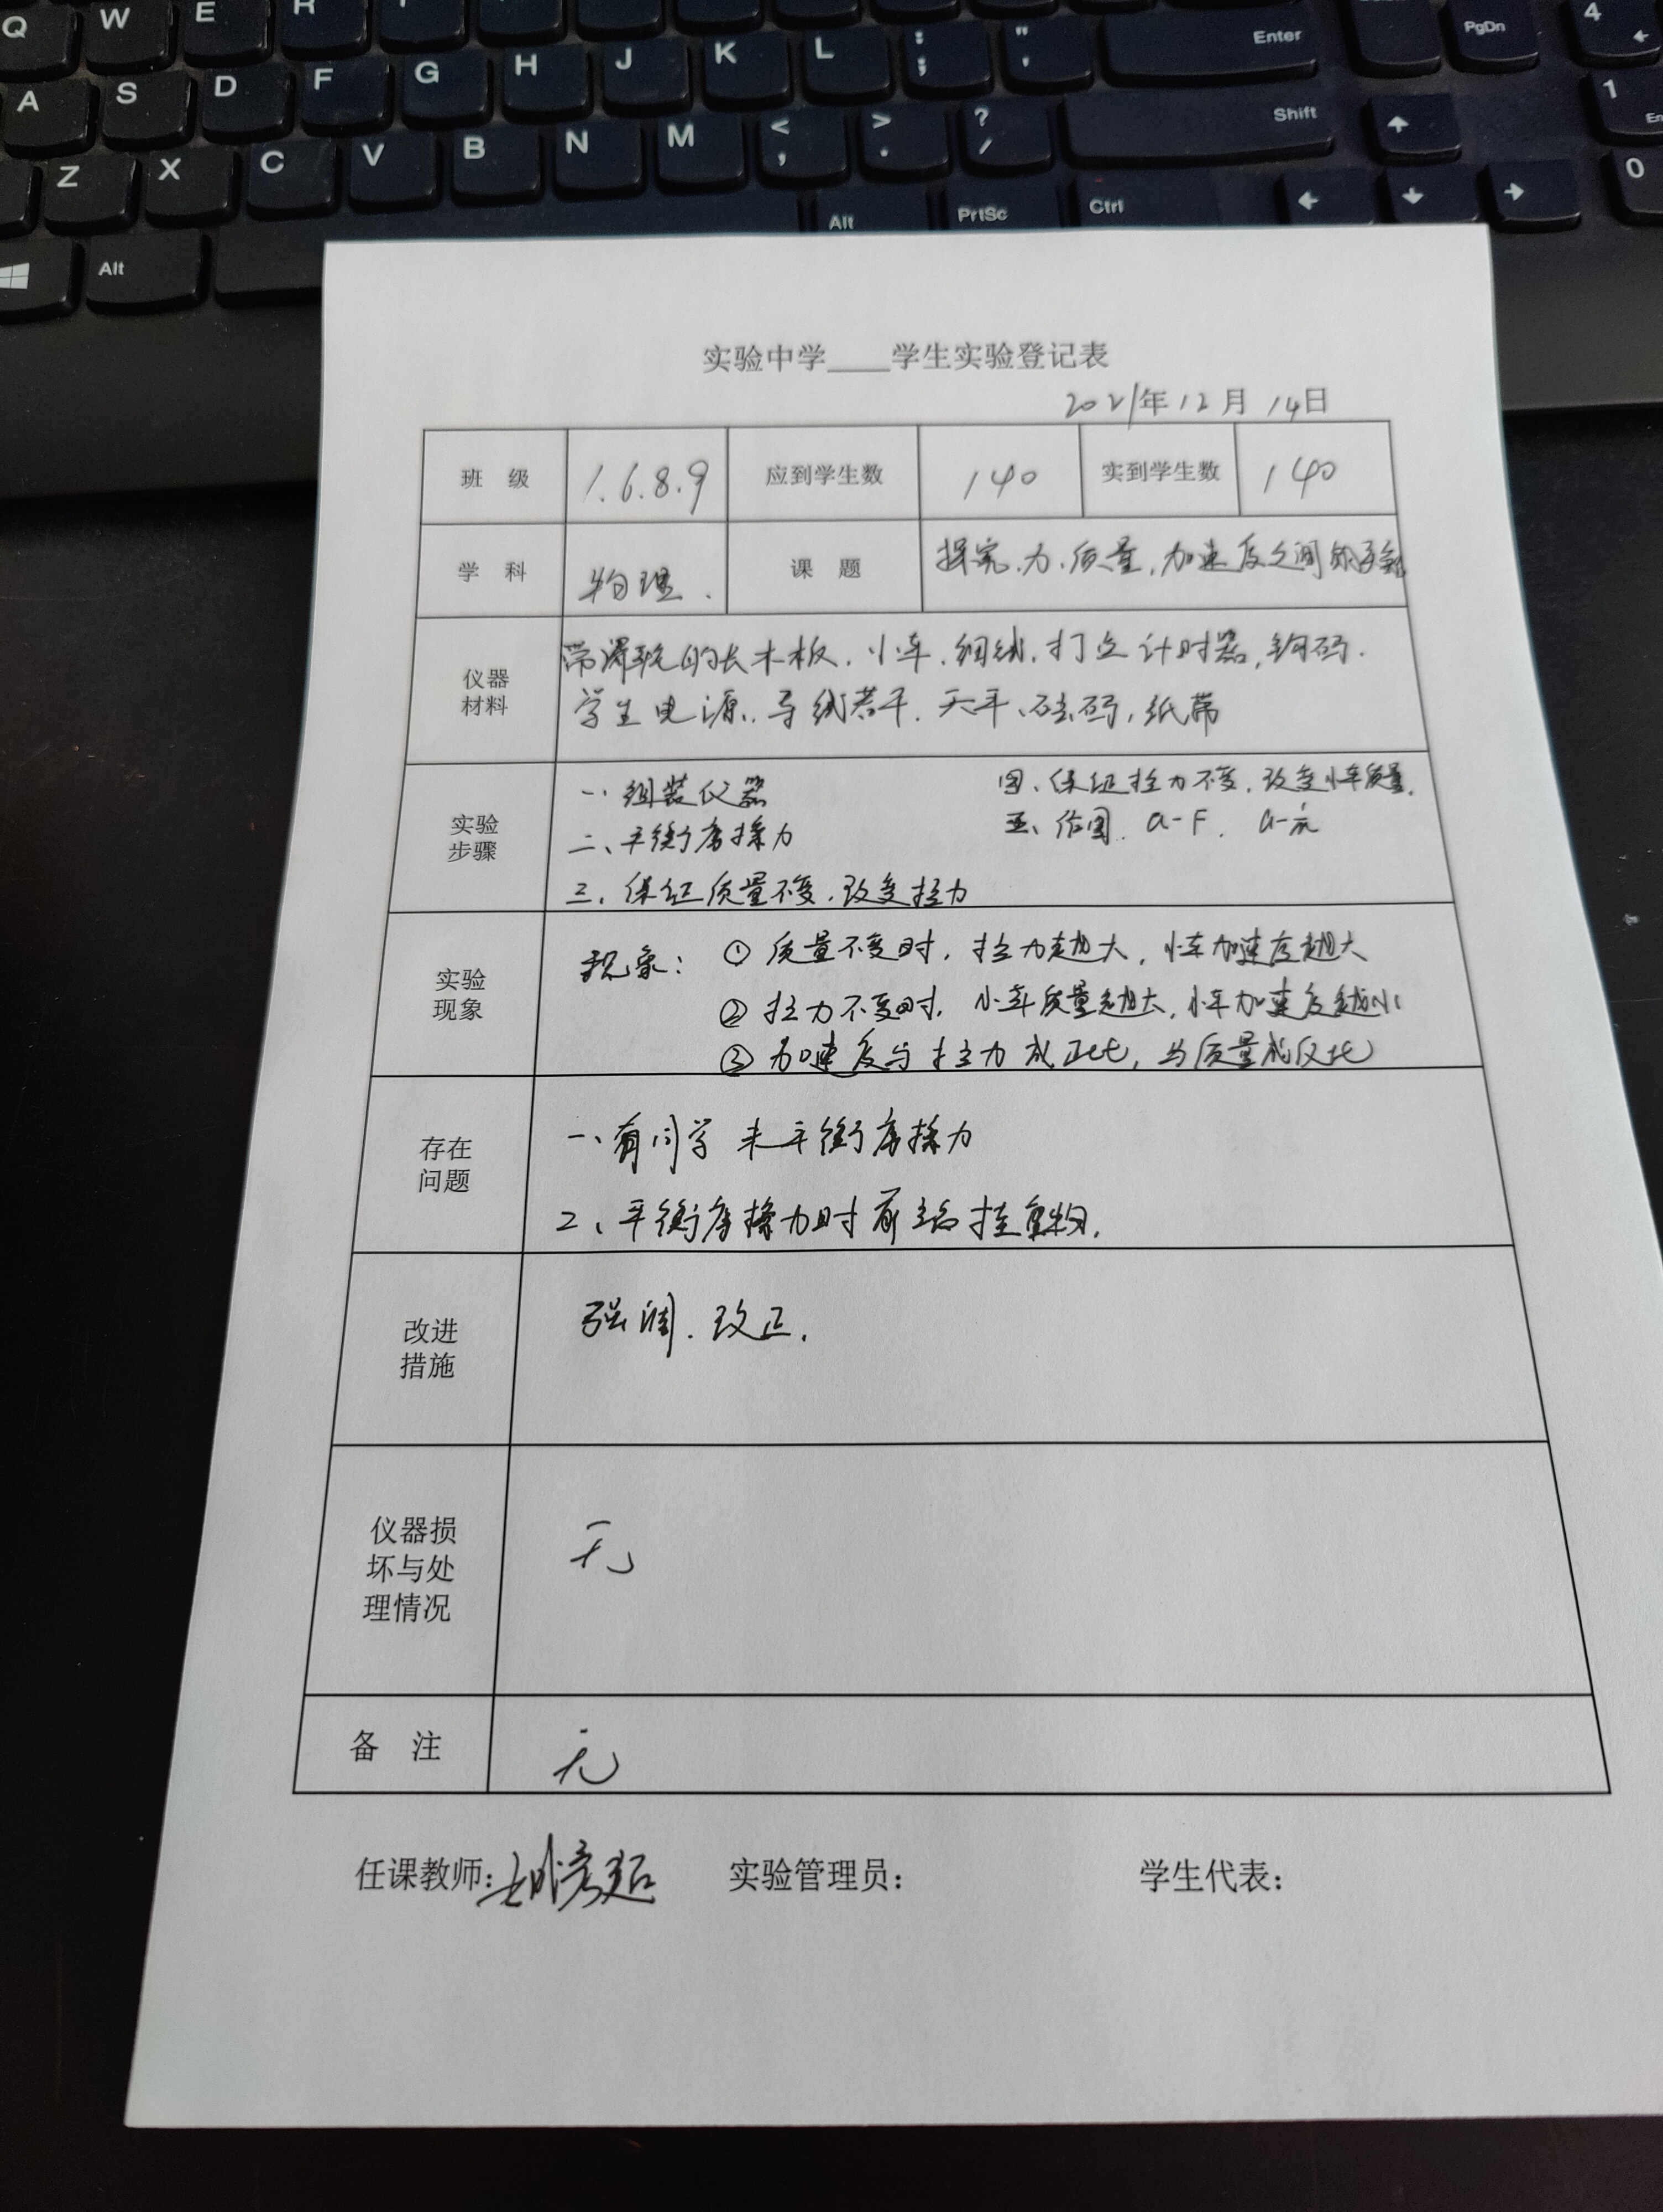 Q W E R
A S D F G H J K L : ; " ' Enter PgDn 4
Z X C V B N M < , > . ? / Shift 1
Alt Alt PrtSc Ctrl 0
实验中学____学生实验登记表
2021年12月14日
班 级 1.6.8.9 应到学生数 140 实到学生数 140
学 科 物理. 课 题 探究.力.质量.加速度之间的
仪器
材料
带滑轮的长木板.小车.细线.打点计时器,钩码.
学生电源.导线若干.天平、砝码,纸带
实验
步骤
一、组装仪器
二、平衡摩擦力
三、保证质量不变.改变拉力
四、保证拉力不变.改变小车质量.
五、作图. a-F. a-1/m
实验
现象
现象: ① 质量不变时.拉力越大,小车加速度越大
② 拉力不变时.小车质量越大,小车加速度越小
③ 加速度与拉力成正比,与质量成反比
存在
问题
一、有同学未平衡摩擦力
2、平衡摩擦力时前端挂重物.
改进
措施
强调.改正.
仪器损
坏与处
理情况
无
备 注 无
任课教师: 实验管理员: 学生代表: